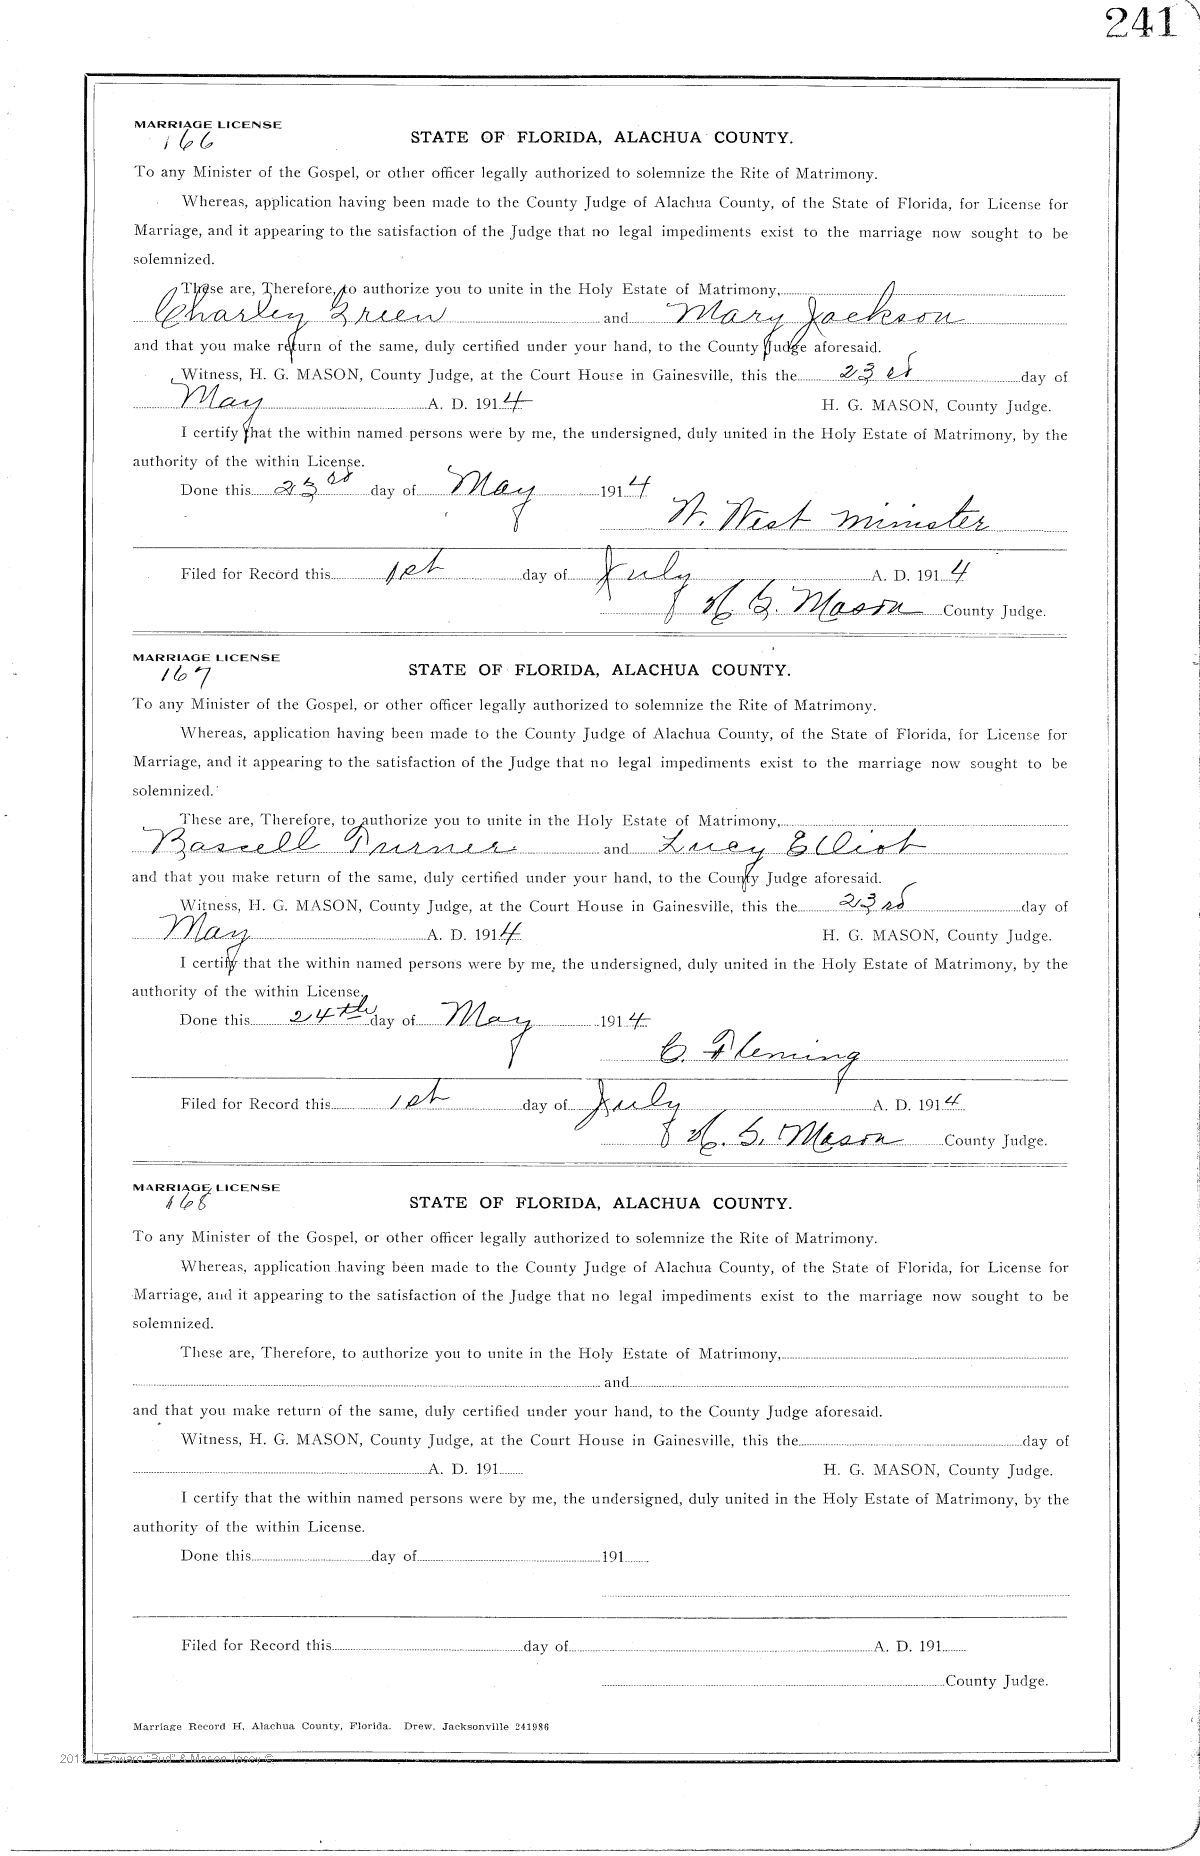 241
MARRIAGE LICENSE
166
STATE OF FLORIDA, ALACHUA COUNTY.
To any Minister of the Gospel, or other officer legally authorized to solemnize the Rite of Matrimony.
Whereas, application having been made to the County Judge of Alachua County, of the State of Florida, for License for
Marriage, and it appearing to the satisfaction of the Judge that no legal impediments exist to the marriage now sought to be
solemnized.
These are, Therefore, to authorize you to unite in the Holy Estate of Matrimony,
Charley Green and Mary Jackson
and that you make return of the same, duly certified under your hand, to the County Judge aforesaid.
Witness, H. G. MASON, County Judge, at the Court House in Gainesville, this the 23rd day of
May A. D. 1914 H. G. MASON, County Judge.
I certify that the within named persons were by me, the undersigned, duly united in the Holy Estate of Matrimony, by the
authority of the within License.
Done this 23rd day of May 1914
W. West minister
Filed for Record this 1st day of July A. D. 1914
H. G. Mason County Judge.
MARRIAGE LICENSE
167
STATE OF FLORIDA, ALACHUA COUNTY.
To any Minister of the Gospel, or other officer legally authorized to solemnize the Rite of Matrimony.
Whereas, application having been made to the County Judge of Alachua County, of the State of Florida, for License for
Marriage, and it appearing to the satisfaction of the Judge that no legal impediments exist to the marriage now sought to be
solemnized.
These are, Therefore, to authorize you to unite in the Holy Estate of Matrimony,
Bascell Turner and Lucy Elliot
and that you make return of the same, duly certified under your hand, to the County Judge aforesaid.
Witness, H. G. MASON, County Judge, at the Court House in Gainesville, this the 23rd day of
May A. D. 1914 H. G. MASON, County Judge.
I certify that the within named persons were by me, the undersigned, duly united in the Holy Estate of Matrimony, by the
authority of the within License.
Done this 24th day of May 1914
C. Fleming
Filed for Record this 1st day of July A. D. 1914
H. G. Mason County Judge.
MARRIAGE LICENSE
168
STATE OF FLORIDA, ALACHUA COUNTY.
To any Minister of the Gospel, or other officer legally authorized to solemnize the Rite of Matrimony.
Whereas, application having been made to the County Judge of Alachua County, of the State of Florida, for License for
Marriage, and it appearing to the satisfaction of the Judge that no legal impediments exist to the marriage now sought to be
solemnized.
These are, Therefore, to authorize you to unite in the Holy Estate of Matrimony,
and
and that you make return of the same, duly certified under your hand, to the County Judge aforesaid.
Witness, H. G. MASON, County Judge, at the Court House in Gainesville, this the day of
A. D. 191 H. G. MASON, County Judge.
I certify that the within named persons were by me, the undersigned, duly united in the Holy Estate of Matrimony, by the
authority of the within License.
Done this day of 191
Filed for Record this day of A. D. 191
County Judge.
Marriage Record H, Alachua County, Florida. Drew, Jacksonville 241986
J Edward "Bud" & Mason